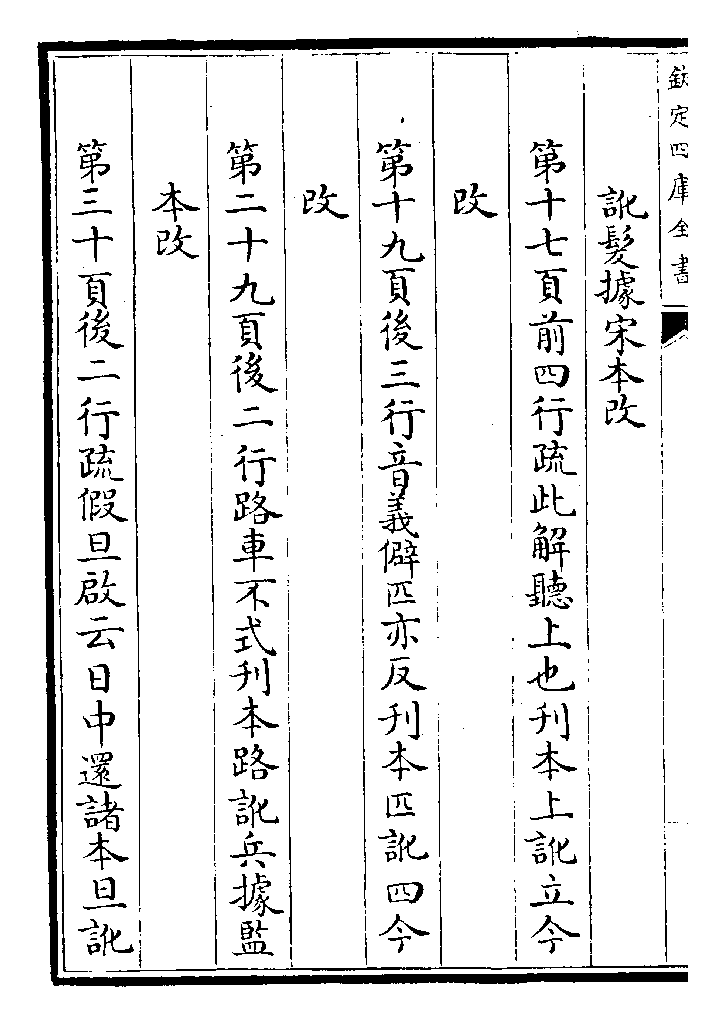 欽定四庫全書
訛髮據宋本改
第十七頁前四行疏此解聽上也刊本上訛立今
改
第十九頁後三行音義僻匹亦反刊本匹訛四今
改
第二十九頁後二行路車不式刊本路訛兵據監
本改
第三十頁後二行疏假旦啟云日中還諸本旦訛